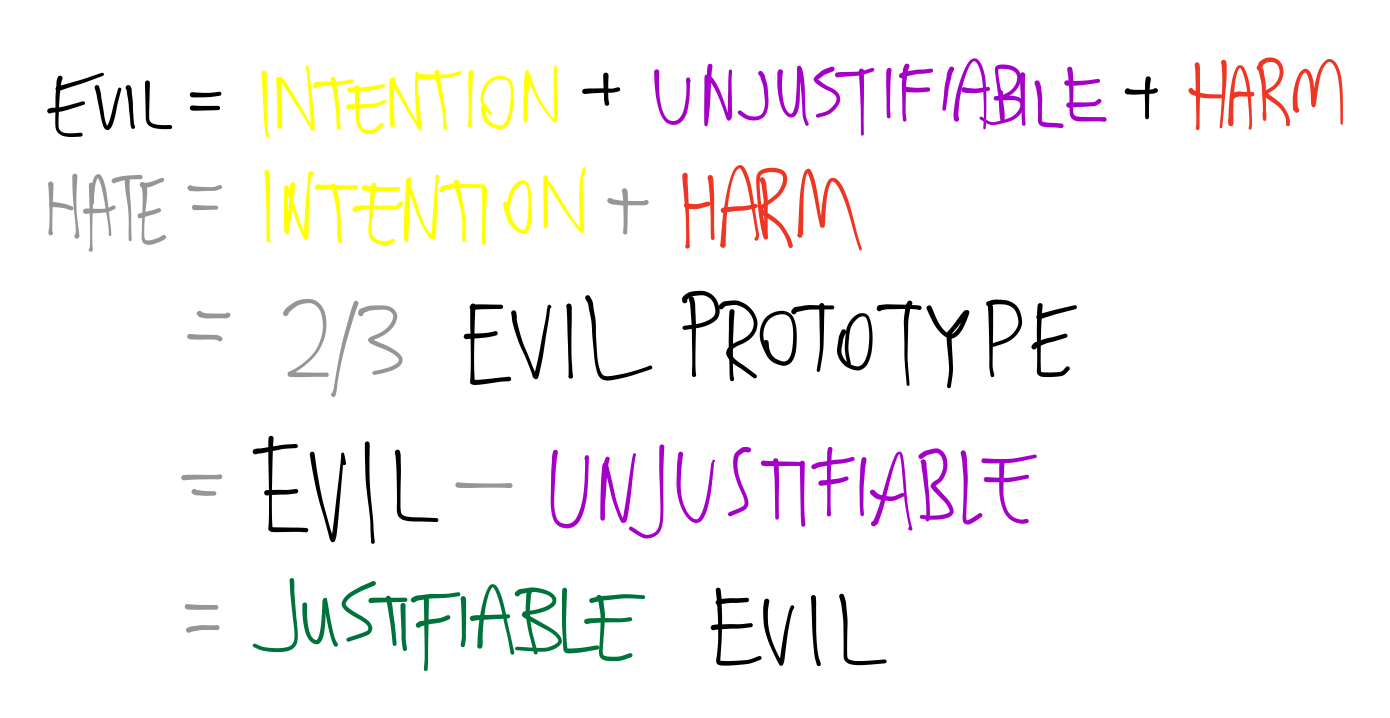 EVIL = INTENTION + UNJUSTIFIABLE + HARM
HATE = INTENTION + HARM
= 2/3 EVIL PROTOTYPE
= EVIL — UNJUSTIFIABLE
= JUSTIFIABLE EVIL